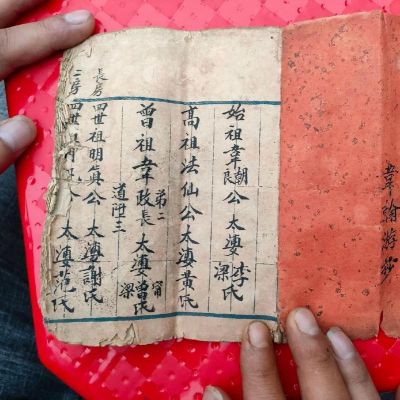 韋翰游抄
始祖韋朝良公太婆李氏梁
高祖法仙公太婆黃氏
曾祖韋政長太婆曾氏甯梁
第二
道陞三
長房四世祖明真公太婆謝氏
二房四世 公太婆范氏